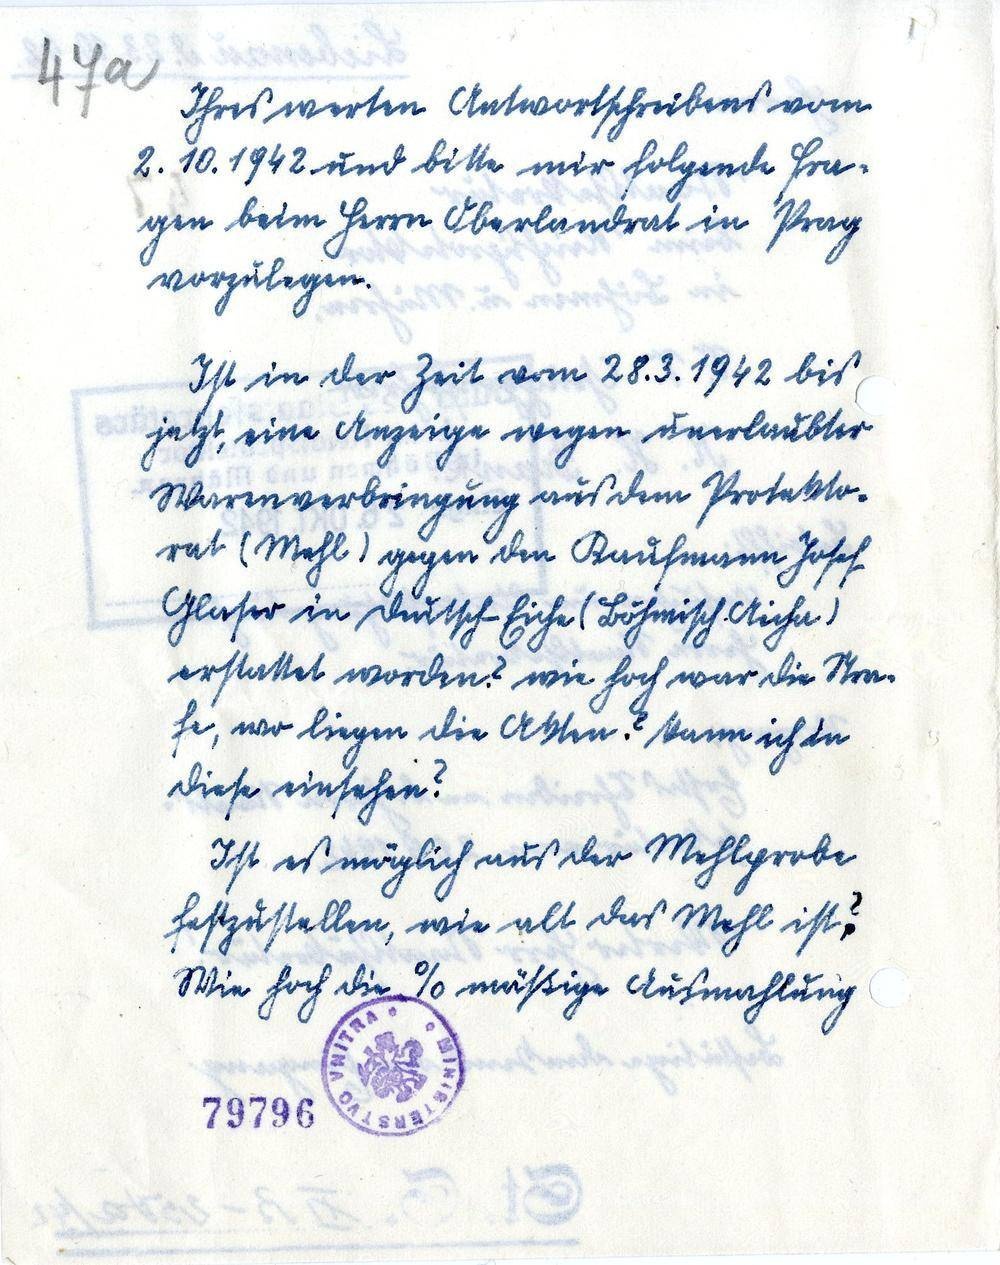 47a
Ihres werten Antwortschreibens vom
2.10.1942 und bitte mir folgende Fra-
gen beim Herrn Oberlandrat in Prag
vorzulegen.
Ist in der Zeit vom 28.3.1942 bis
jetzt, eine Anzeige wegen unerlaubter
Warenverbringung aus dem Protekto-
rat (Mehl) gegen den Kaufmann Josef
Glaser in Deutsch-Eiche (Böhmisch Aicha)
erstattet worden? wie hoch war die Stra-
fe, wo liegen die Akten? kann ich in
diese einsehen?
Ist es möglich aus der Mehlprobe
festzustellen, wie alt das Mehl ist?
Wie hoch die % mäßige Ausmahlung
MINISTERSTVO VNITRA
79796